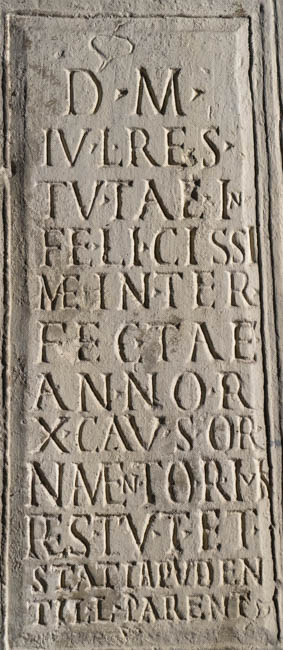 D·M·
IV·L·RE·S·
TV·TAE·IN
FE·LI·CISSI
MÆ·IN·TER
FE CTAE
ANN·OR
X·CAV·S·OR
NAM·EN·TO·R·
RESTVT·ET
STATIAPVDEN
TILL·PARENTES